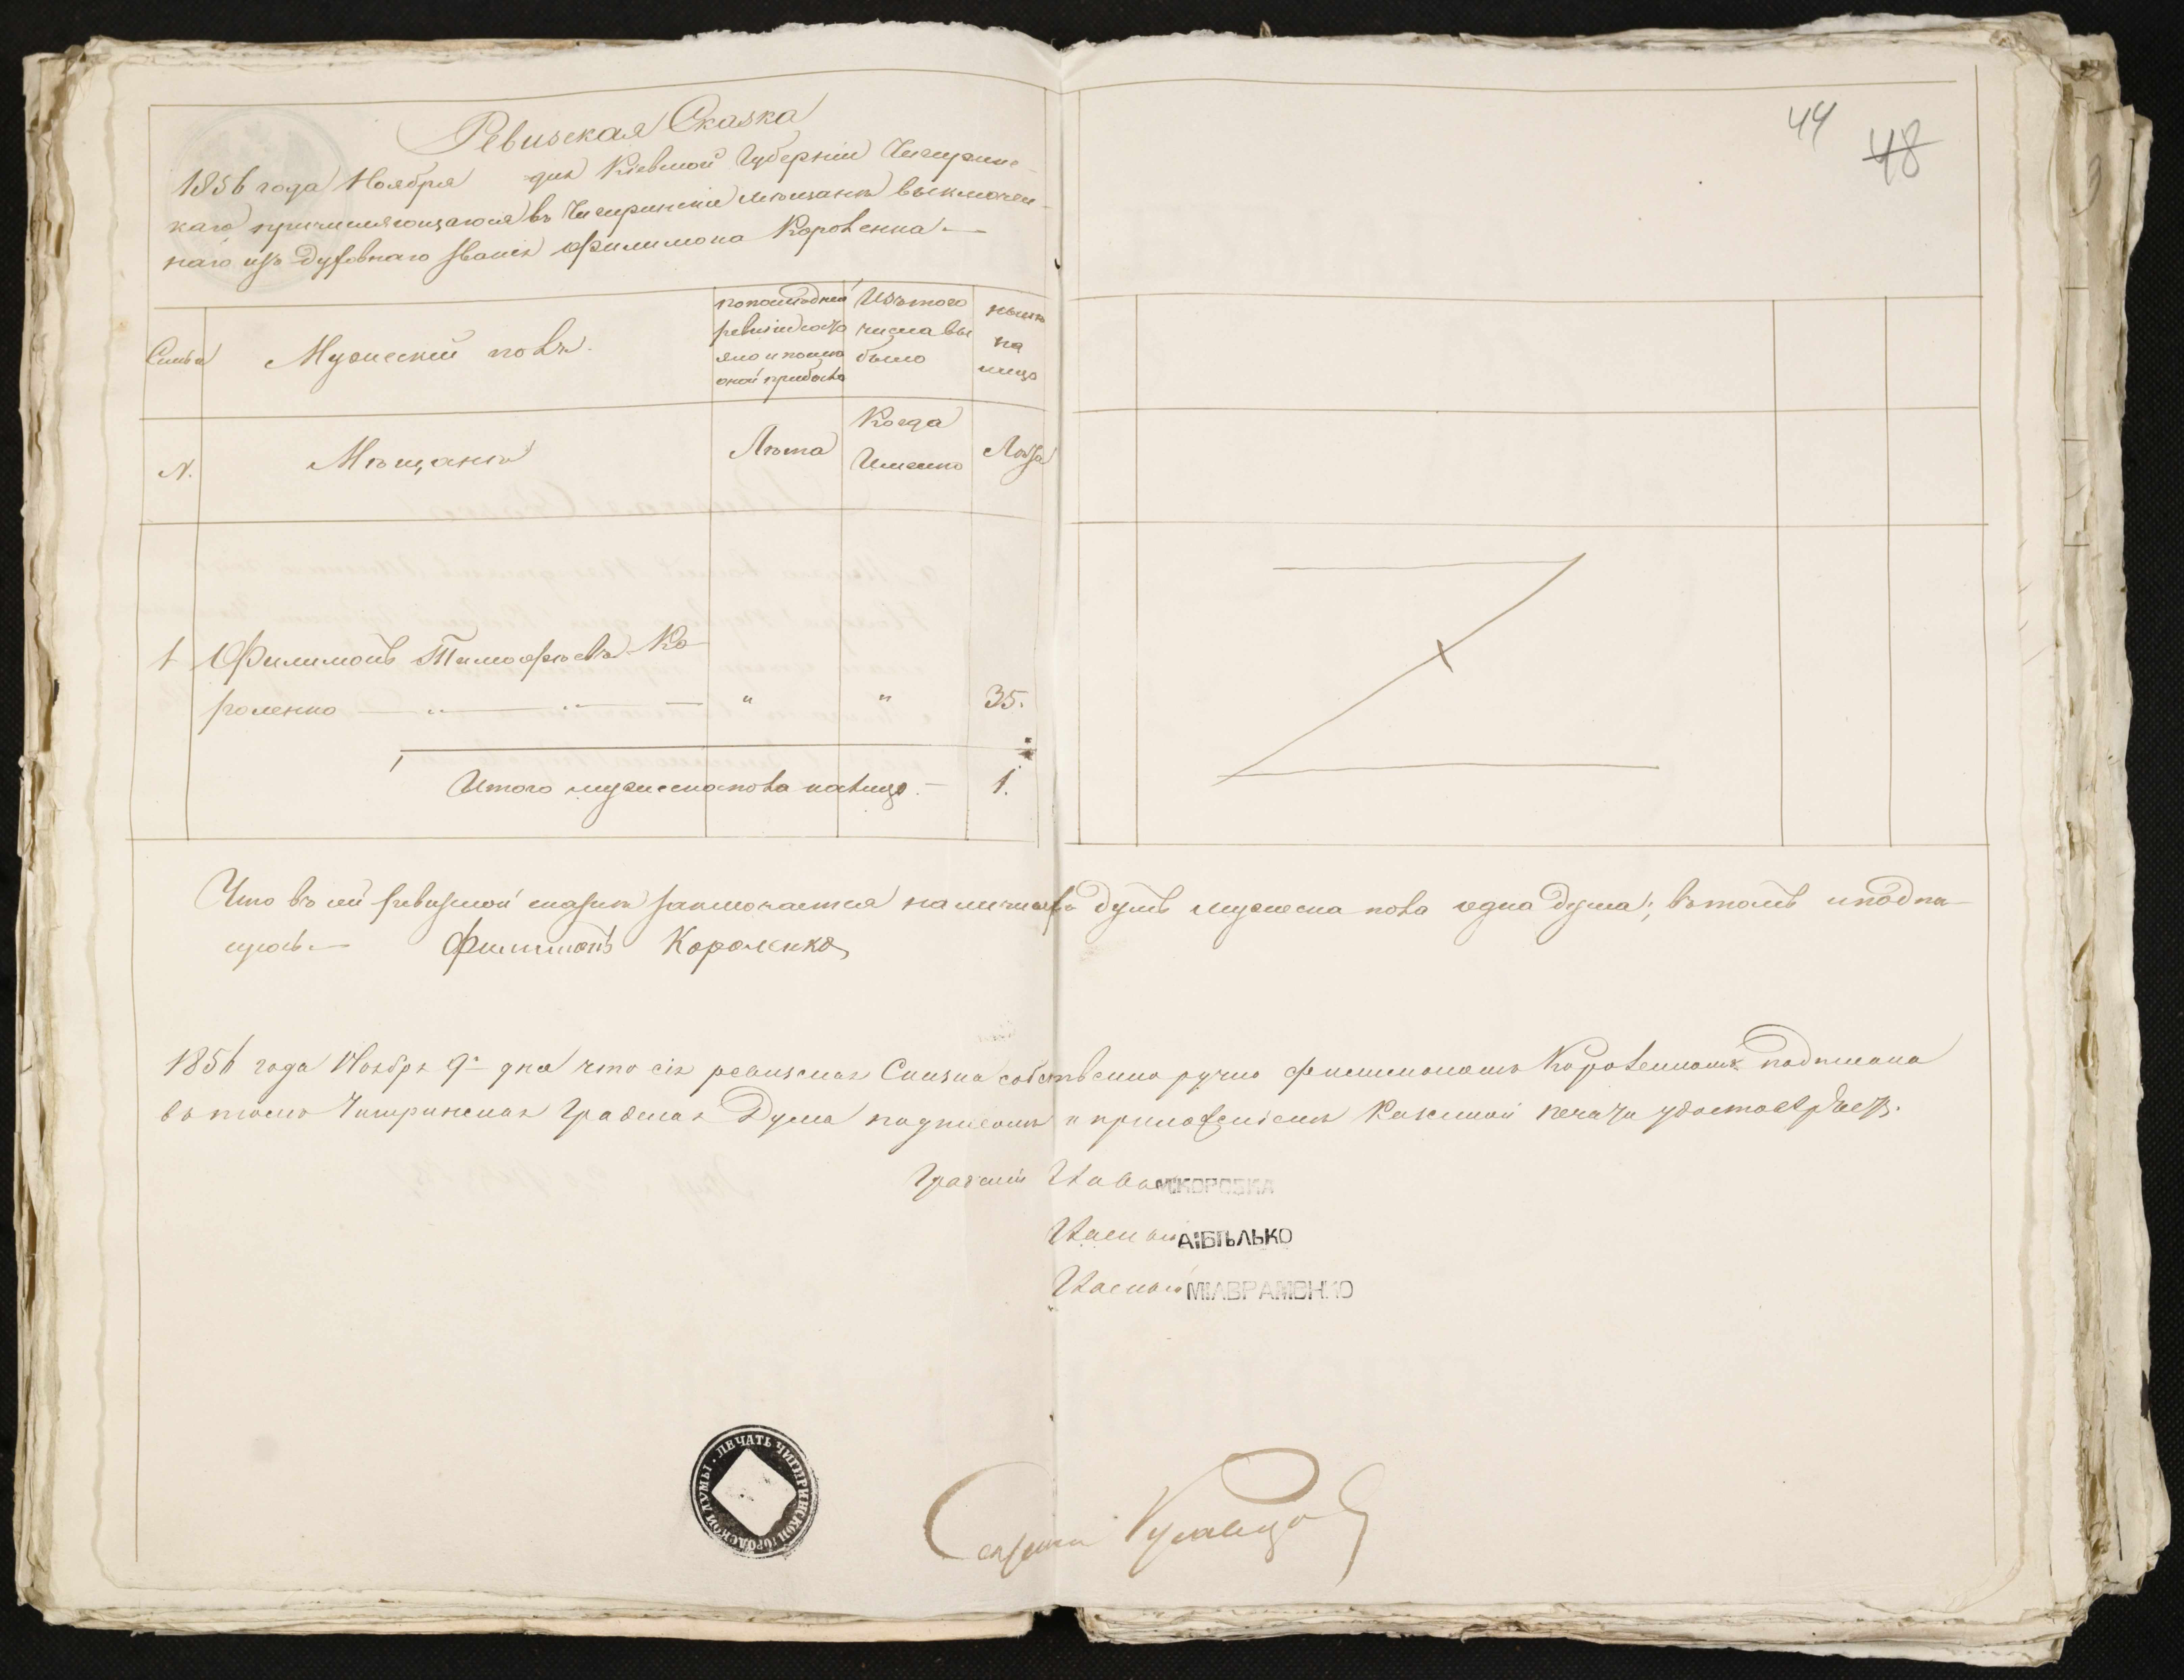 44
48
Ревизская Сказка
1856 года Ноября дня Кіевской Губерніи Чигиринс-
каго причисляющагося въ Чигиринскіе мѣщане выключен-
наго изъ духовнаго званія Филимона Короленка.—
Семья
Мужескій полъ.
по послѣдней
ревизіи состо
яло и послѣ
оной прибыло
Изъ того
числа вы
было
нынѣ
на
лицо
N.
Мѣщане
Лѣта
Когда
Именно
Лѣта
1 Филимонъ Тимофѣевъ Ко-
роленко — „ — „ — " " 35.
Итого мужеска пола на лицо.— 1.
Что въ сей ревизской сказкѣ заключается наличныхъ душъ мужеска пола одна душа; въ томъ и подпи-
суюсь.— Филимонъ Короленко
1856 года Ноября 9 дня что сія ревизская Сказка собственно ручно Филимономъ Короленкомъ подписана
въ томъ Чигиринская Градская Дума подписомъ и приложеніемъ Казенной печати удостовѣряетъ.
Градскій Глава М:КОРОБКА
Гласный А:БѢЛЬКО
Гласный М:АВРАМЕНКО
ПЕЧАТЬ ЧИГИРИНСКОЙ ГОРОДСКОЙ ДУМЫ